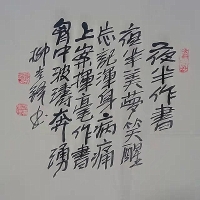 夜半作書
夜半美夢笑醒
忘記渾身病痛
上案揮毫作書
胸中波濤奔湧